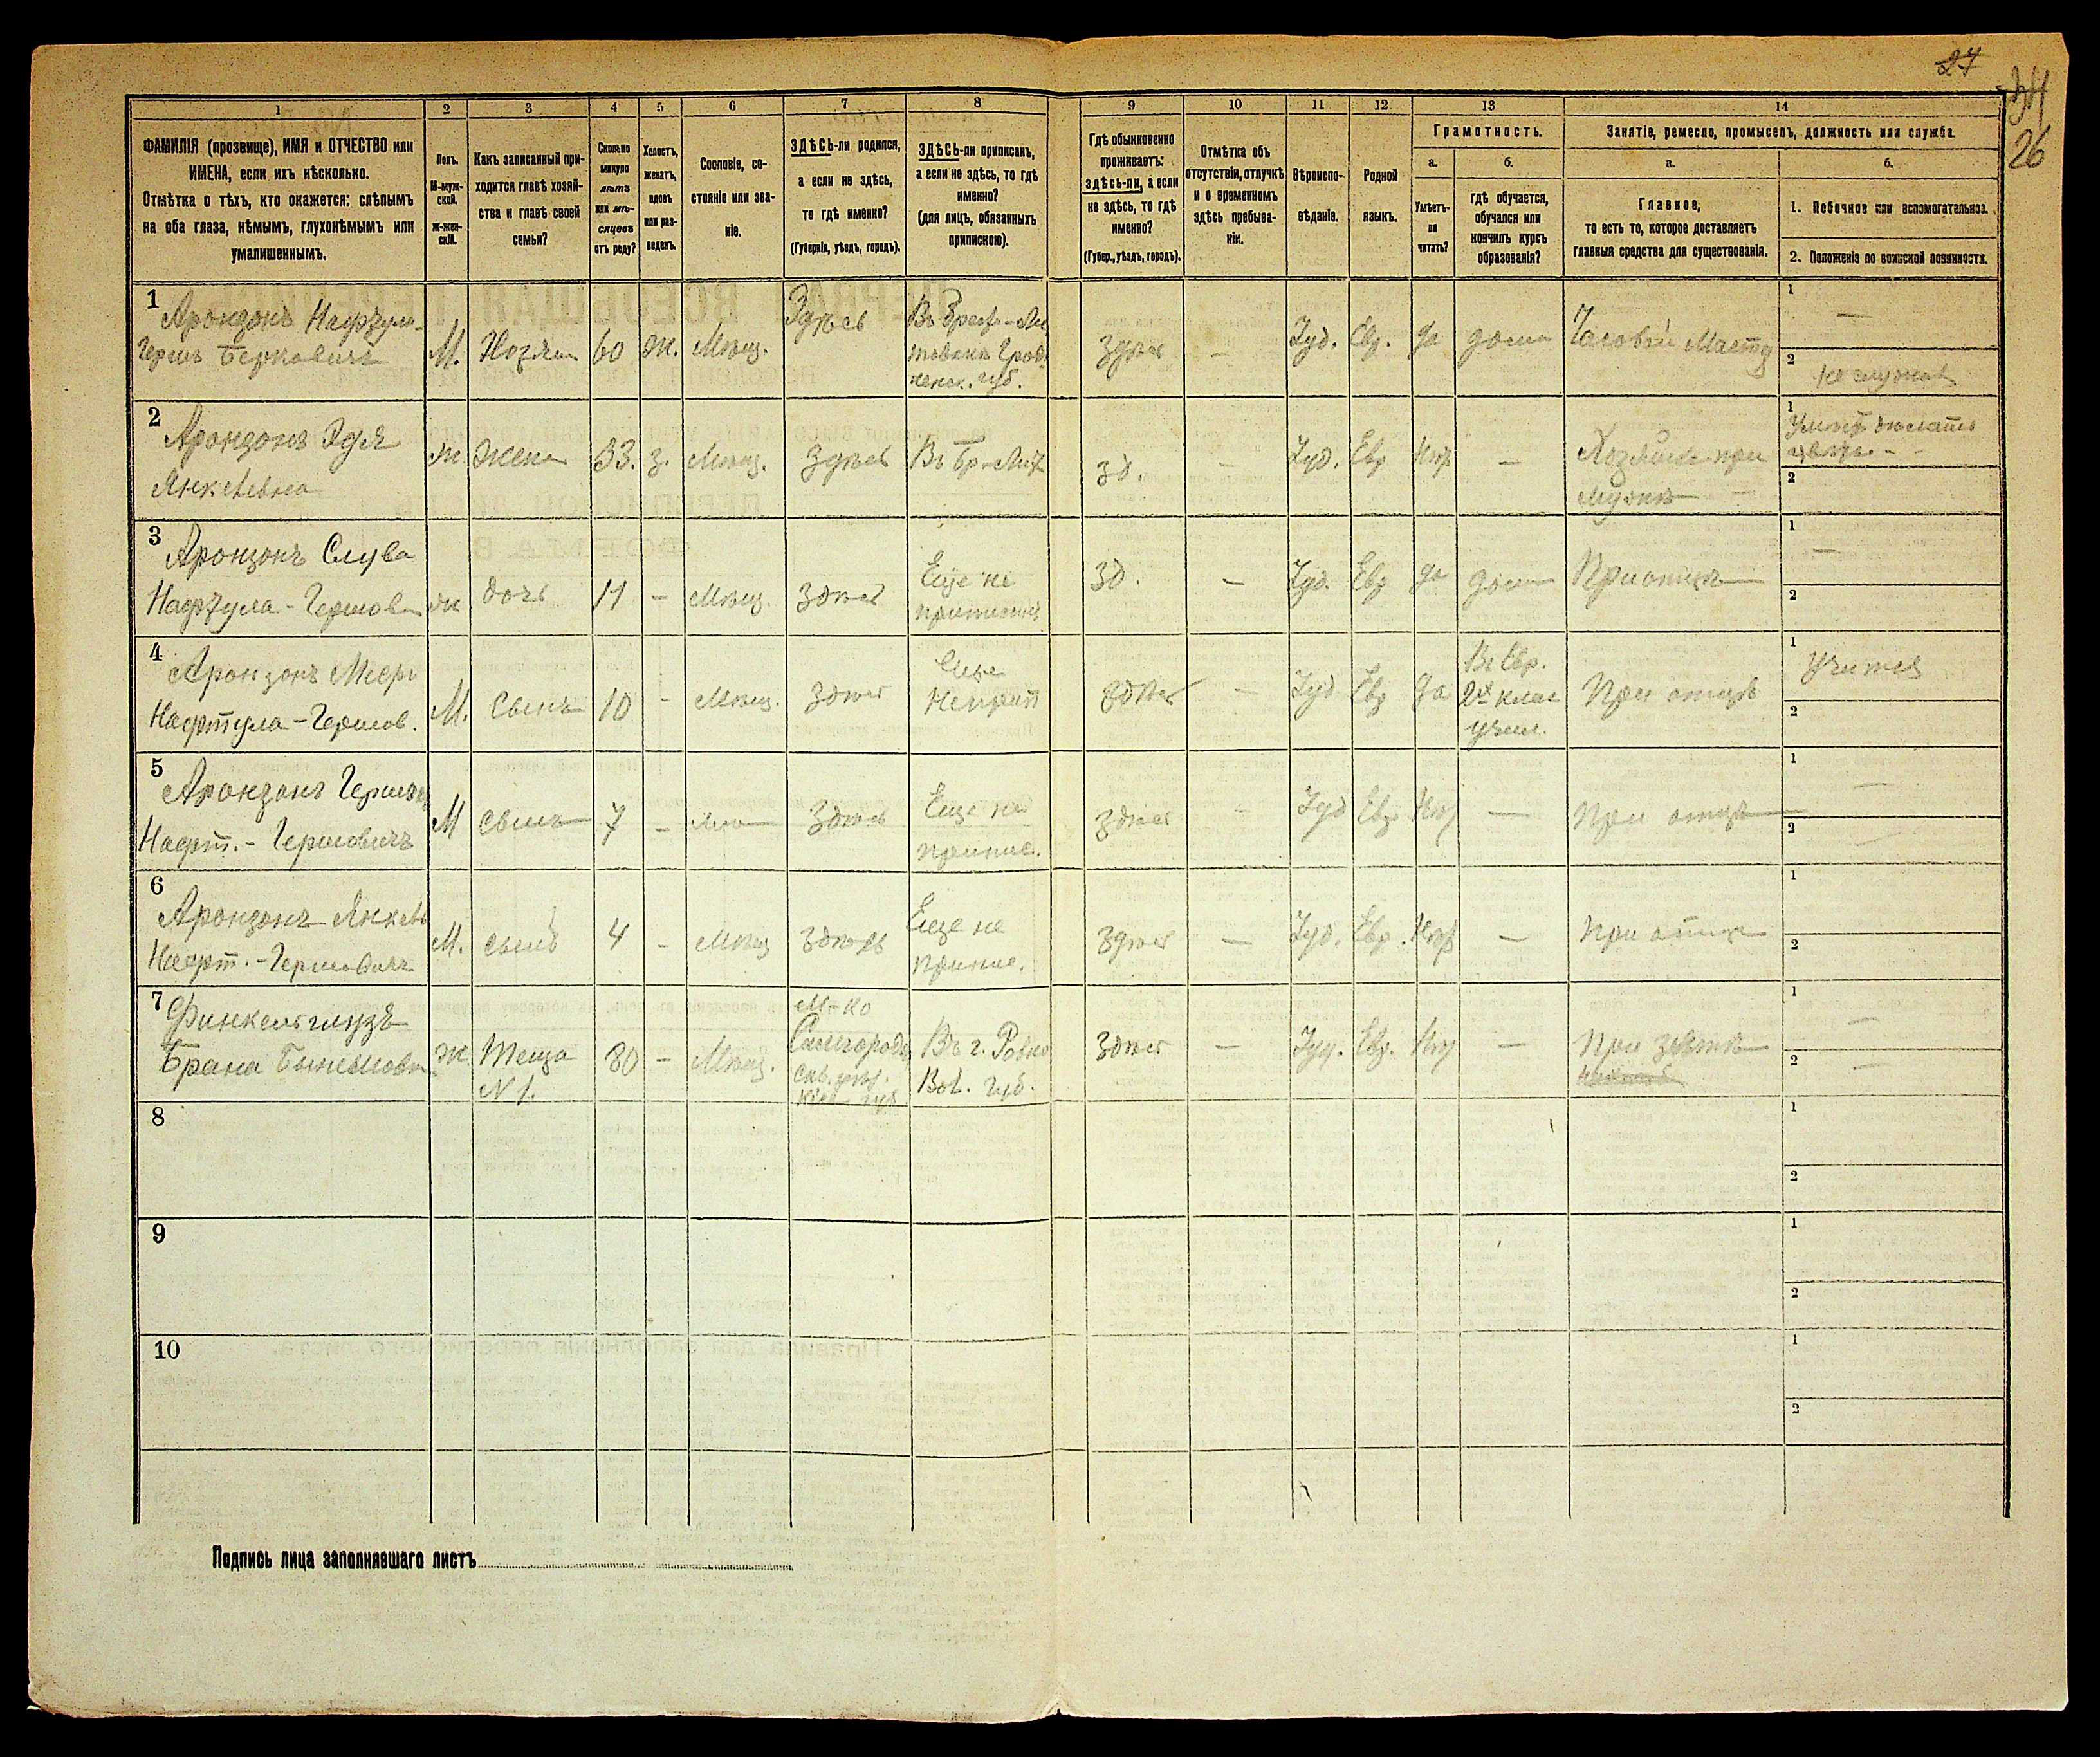 27
34
26
1
2
3
4
5
6
7
8
9
10
11
12
13
14
ФАМИЛІЯ (прозвище), ИМЯ и ОТЧЕСТВО или
ИМЕНА, если ихъ нѣсколько.
Отмѣтка о тѣхъ, кто окажется: слѣпымъ
на оба глаза, нѣмымъ, глухонѣмымъ или
умалишеннымъ.
Полъ.
М-муж-
ской.
ж-жен-
скій.
Какъ записанный при-
ходится главѣ хозяй-
ства и главѣ своей
семьи?
Сколько
минуло
лѣтъ
или мѣ-
сяцевъ
отъ роду?
Холостъ,
женатъ,
вдовъ
или раз-
веденъ.
Сословіе, со-
стояніе или зва-
ніе.
ЗДѢСЬ-ли родился,
а если не здѣсь,
то гдѣ именно?
(Губернія, уѣздъ, городъ).
ЗДѢСЬ-ли приписанъ,
а если не здѣсь, то гдѣ
именно?
(для лицъ, обязанныхъ
припискою).
Гдѣ обыкновенно
проживаетъ:
здѣсь-ли, а если
не здѣсь, то гдѣ
именно?
(Губер., уѣздъ, городъ).
Отмѣтка объ
отсутствіи, отлучкѣ
и о временномъ
здѣсь пребыва-
ніи.
Вѣроиспо-
вѣданіе.
Родной
языкъ.
Грамотность.
а.
Умѣетъ-
ли
читать?
б.
гдѣ обучается,
обучался или
кончилъ курсъ
образованія?
Занятіе, ремесло, промыселъ, должность или служба.
а.
Главное,
то есть то, которое доставляетъ
главныя средства для существованія.
б.
1. Побочное или вспомогательное.
2. Положеніе по воинской повинности.
1
Аронзонъ Нафтула-
Гершъ Берковичъ
М.
Хозяин
60
Ж.
Мѣщ.
Здѣсь
Въ Брест-Ли
товскѣ Грод
ненск. губ.
здѣсь
—
Іуд.
Евр.
да
дома
Часовой Мастер
1
—
2
не служил
2
Аронзонъ Эдля
Янкелевна
Ж.
Жена
33.
з.
Мѣщ.
Здѣсь
Въ Бр-Лит
зд.
—
Іуд.
Евр
Нѣт
—
Хозяйка при
мужѣ
1
2
3
Аронзонъ Слува
Нафтула-Гершов
Ж
дочь
11
—
Мѣщ.
здѣсь
Еще не
приписана
зд.
—
Іуд.
Евр
да
дома
При отцѣ
1
—
2
4
Аронзонъ Меер
Нафтула-Гершов.
М.
Сынъ
10
-
Мѣщ.
здѣсь
Еще
Неприп
здѣсь
—
Іуд
Евр
да
Въ Евр.
2х клас
учил.
При отцѣ
1
Учится
2
5
Аронзонъ Гершъ
Нафт.-Гершовичъ
М
сынъ
7
—
здѣсь
Еще не
припис.
здѣсь
-
Іуд
Евр
Нѣт
—
При отцѣ
1
—
2
6
Аронзонъ Янкель
Нафт.-Гершовичъ
М.
сынъ
4
-
Мѣщ
здѣсь
Еще не
припис.
здѣсь
—
Іуд.
Евр.
Нѣт
—
При отцѣ
1
2
7
Финкельглузъ
Брана
Ж.
Теща
N 1.
80
—
Мѣщ.
М-ко
скв. уѣз.
Кіев губ
Въ г. Ровно
Вол. губ.
здѣсь
—
Іуд.
Евр.
Нѣт
—
При зятѣ
1
—
2
—
8
1
2
9
1
2
10
1
2
Подпись лица заполнявшаго листъ